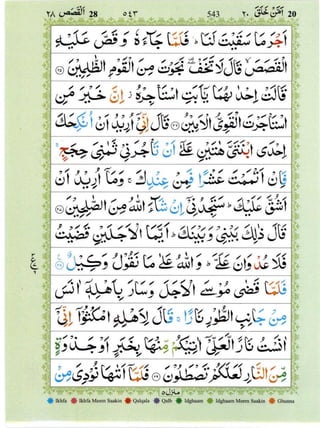 اَلْقَصَص ٢٨ 28 ٥٤٣ 543 اَمَّنْ خَلَقَ ٢٠ 20
اَجْرَ مَا سَقَيْتَ لَنَا ؕ فَلَمَّا جَآءَهٗ وَ قَصَّ عَلَيْهِ
الْقَصَصَ ۙ قَالَ لَا تَخَفْ ۥ۫ نَجَوْتَ مِنَ الْقَوْمِ الظّٰلِمِيْنَ ﴿۲۵﴾
قَالَتْ اِحْدٰىهُمَا يٰۤاَبَتِ اسْتَاْجِرْهُ ؗ اِنَّ خَيْرَ مَنِ
اسْتَاْجَرْتَ الْقَوِيُّ الْاَمِيْنُ ﴿۲۶﴾ قَالَ اِنِّيْۤ اُرِيْدُ اَنْ اُنْكِحَكَ
اِحْدَى ابْنَتَيَّ هٰتَيْنِ عَلٰۤى اَنْ تَاْجُرَنِيْ ثَمٰنِيَ حِجَجٍ ۚ
فَاِنْ اَتْمَمْتَ عَشْرًا فَمِنْ عِنْدِكَ ۚ وَ مَاۤ اُرِيْدُ اَنْ
اَشُقَّ عَلَيْكَ ؕ سَتَجِدُنِيْۤ اِنْ شَآءَ اللّٰهُ مِنَ الصّٰلِحِيْنَ ﴿۲۷﴾
قَالَ ذٰلِكَ بَيْنِيْ وَ بَيْنَكَ ؕ اَيَّمَا الْاَجَلَيْنِ قَضَيْتُ
فَلَا عُدْوَانَ عَلَيَّ ؕ وَ اللّٰهُ عَلٰى مَا نَقُوْلُ وَكِيْلٌ ﴿۲۸﴾
فَلَمَّا قَضٰى مُوْسَى الْاَجَلَ وَ سَارَ بِاَهْلِهٖۤ اٰنَسَ
مِنْ جَانِبِ الطُّوْرِ نَارًا ۚ قَالَ لِاَهْلِهِ امْكُثُوْۤا اِنِّيْۤ
اٰنَسْتُ نَارًا لَّعَلِّيْۤ اٰتِيْكُمْ مِّنْهَا بِخَبَرٍ اَوْ جَذْوَةٍ
مِّنَ النَّارِ لَعَلَّكُمْ تَصْطَلُوْنَ ﴿۲۹﴾ فَلَمَّاۤ اَتٰىهَا نُوْدِيَ مِنْ
منزل ٥
Ikhfa Ikhfa Meem Saakin Qalqala Qalb Idghaam Idghaam Meem Saakin Ghunna